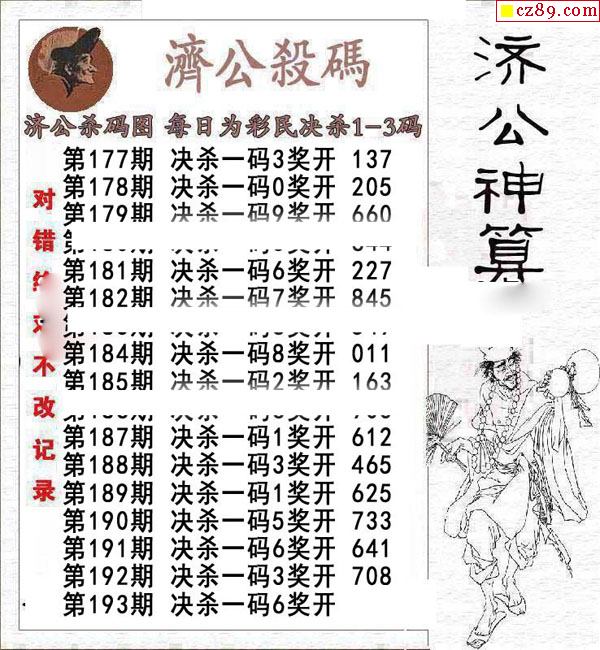 cz89.com
濟公殺碼
济公杀码图 每日为彩民决杀1-3码
第177期 决杀一码3奖开 137
第178期 决杀一码0奖开 205
第179期 决杀一码9奖开 660
第181期 决杀一码6奖开 227
第182期 决杀一码7奖开 845
第184期 决杀一码8奖开 011
第185期 决杀一码2奖开 163
第187期 决杀一码1奖开 612
第188期 决杀一码3奖开 465
第189期 决杀一码1奖开 625
第190期 决杀一码5奖开 733
第191期 决杀一码6奖开 641
第192期 决杀一码3奖开 708
第193期 决杀一码6奖开
对错
不改记录
济公神算